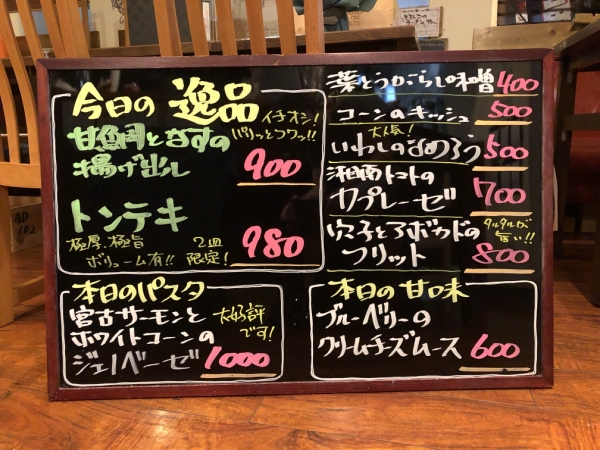 今日の 逸品
イチオシ!
パリッとコワッ!!
甘鯛となすの
揚げ出し
900
トンテキ
極厚、極旨
ボリューム有!!
2皿
限定!
980
本日のパスタ
宮古サーモンと
ホワイトコーンの
ジェノベーゼ
大好評
です!
1000
葉とうがらし味噌 400
コーンのキッシュ 500
大人気!
いわしのなめろう 500
湘南トマトの
カプレーゼ 700
穴子とアボカドの
フリット 800
タルタルが
旨い!!
本日の甘味
ブルーベリーの
クリームチーズムース 600